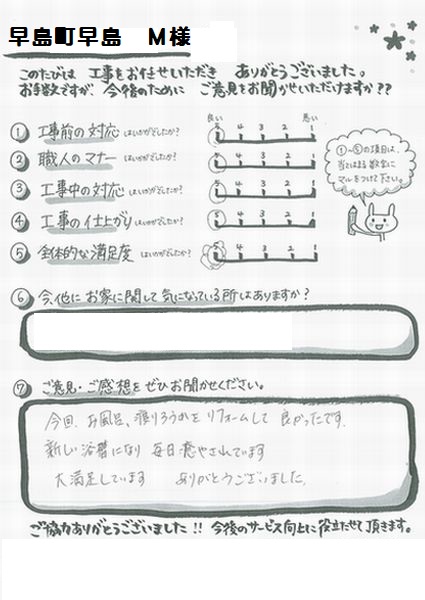 早島町早島 M様
このたびは 工事をお任せいただき ありがとうございました。
お手数ですが、今後のために ご意見をお聞かせいただけますか??
良い 悪い
① 工事前の対応 はいかがでしたか? 5 4 3 2 1
② 職人のマナー はいかがでしたか? 5 4 3 2 1
③ 工事中の対応 はいかがでしたか? 5 4 3 2 1
④ 工事の仕上がり はいかがでしたか? 5 4 3 2 1
⑤ 全体的な満足度 はいかがでしたか? 5 4 3 2 1
①～⑤の項目は、
当てはまる数字に
マルをつけて下さい。
⑥ 今、他に お家に関して 気になっている所はありますか?
⑦ ご意見・ご感想を ぜひお聞かせください。
今回、お風呂、渡りろうかを リフォームして 良かったです。
新しい浴槽になり 毎日癒やされています
大満足しています ありがとうございました。
ご協力ありがとうございました!! 今後のサービス向上に役立たせて頂きます。